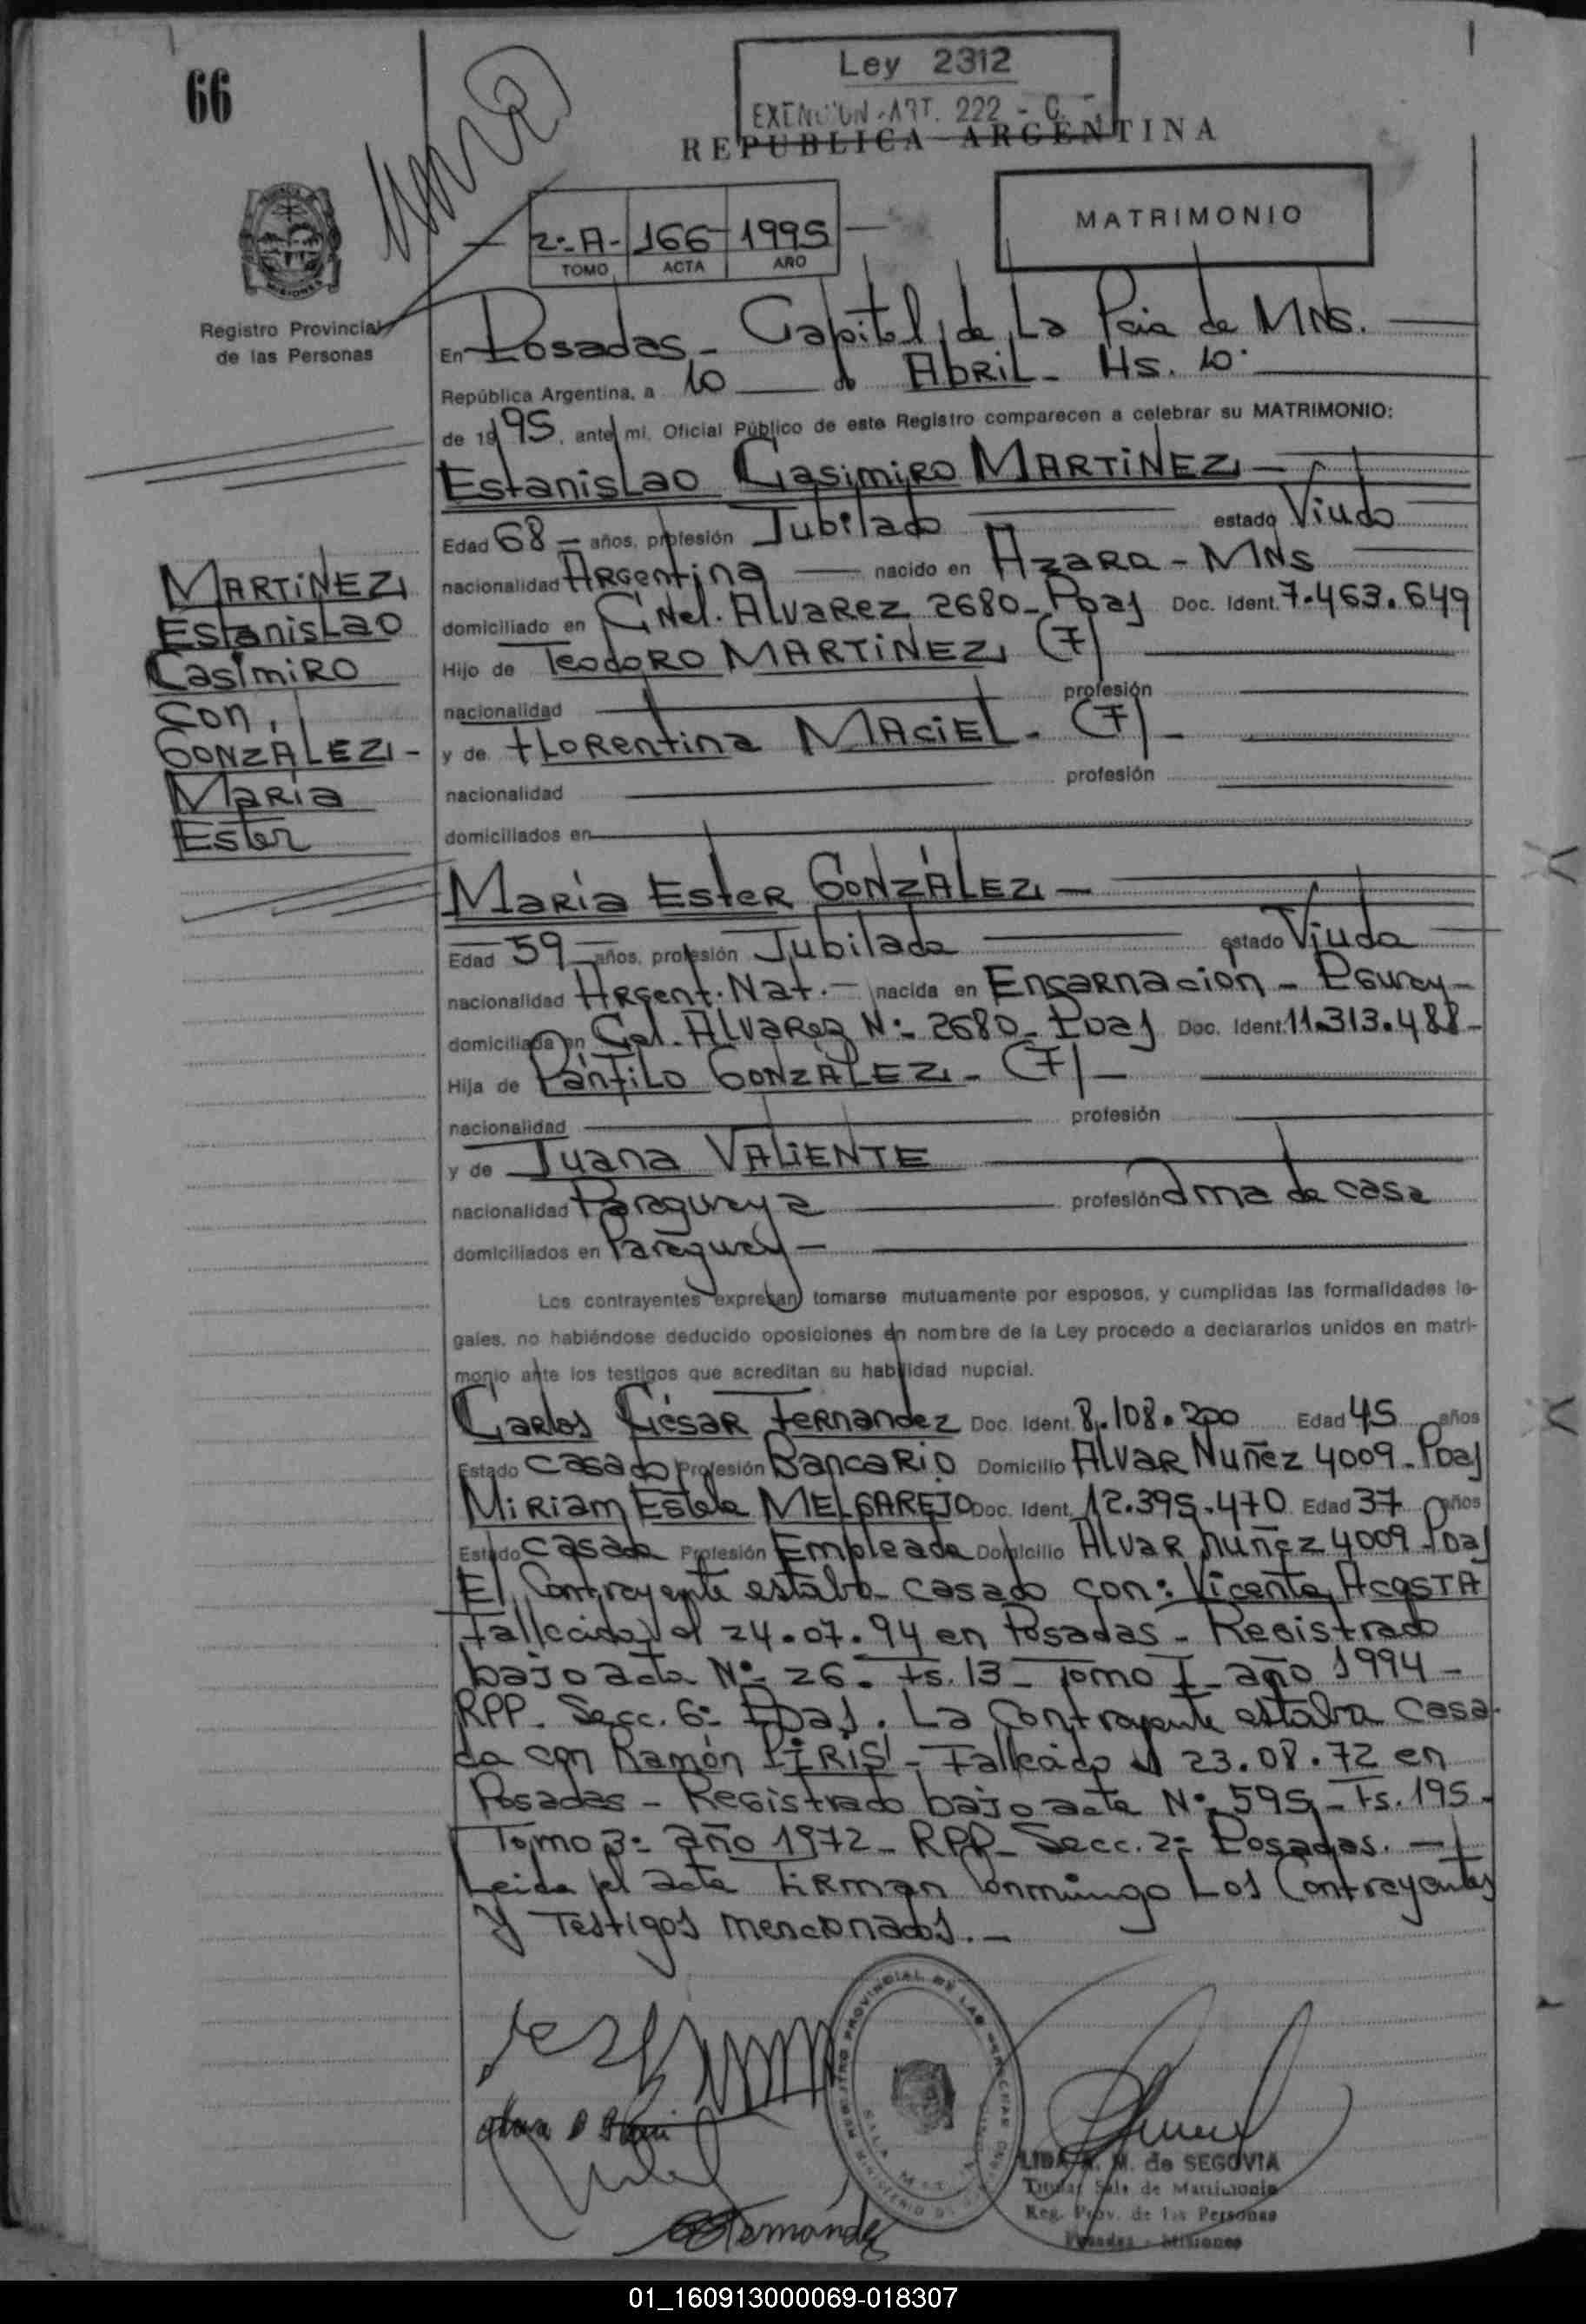 66
Ley 2312
EXENCION-ART. 222 - C.
REPUBLICA ARGENTINA
MATRIMONIO
2º-A- 166 1995
TOMO ACTA AÑO
Registro Provincial
de las Personas
En Posadas - Capital de La Pcia de MNs.
República Argentina, a 10 de Abril - Hs. 10.
de 1995, ante mi, Oficial Público de este Registro comparecen a celebrar su MATRIMONIO:
Estanislao Casimiro MARTINEZ -
Edad 68 - años, profesión Jubilado estado Viudo
nacionalidad Argentina nacido en Azara - MNS
domiciliado en CNel. Alvarez 2680 - Pdas Doc. Ident. 7.463.649
Hijo de Teodoro MARTINEZ (F)
nacionalidad profesión
y de Florentina MACIEL - (F) -
nacionalidad profesión
domiciliados en
MARTINEZ
Estanislao
Casimiro
Con,
GONZÁLEZ -
Maria
Ester
María Ester GONZÁLEZ -
Edad 59 - años, profesión Jubilada estado Viuda
nacionalidad Argent. Nat. - nacida en Encarnacion - Pguay -
domiciliada en Cel. Alvarez Nº- 2680 - Pdas Doc. Ident. 11.313.488 -
Hija de Pánfilo GONZÁLEZ - (F) -
nacionalidad profesión
y de Juana VALIENTE
nacionalidad Paraguaya profesión ama de casa
domiciliados en Paraguay -
Los contrayentes expresan tomarse mutuamente por esposos, y cumplidas las formalidades le-
gales, no habiéndose deducido oposiciones en nombre de la Ley procedo a declararlos unidos en matri-
monio ante los testigos que acreditan su habilidad nupcial.
Carlos César Fernandez Doc. Ident. 8.108.200 Edad 45 años
Estado casado Profesión Bancario Domicilio Alvar Nuñez 4009 - Pdas
Miriam Estela MELGAREJO Doc. Ident. 12.395.470 Edad 37 años
Estado casada Profesión Empleada Domicilio Alvar Nuñez 4009 - Pdas
El Contrayente estaba casado con: Vicenta ACOSTA
Fallecida el 24.07.94 en Posadas - Registrado
bajo acta Nº- 26 - Fs. 13 - Tomo I - año 1994 -
RPP - Secc. 6º- Pdas. La Contrayente estaba casa-
da con Ramón PIRIS - Fallecido el 23.08.72 en
Posadas - Registrado bajo acta Nº- 595 - Fs. 195 -
Tomo 3º- año 1972 - RPP - Secc. 2º- Posadas. -
Leida el acta firman conmingo Los Contrayentes
y Testigos mencionados. -
REGISTRO PROVINCIAL DE LAS PERSONAS
Fernandez
LIDA M. de SEGOVIA
Titular Sala de Matrimonio
Reg. Prov. de las Personas
Posadas - Misiones
01_160913000069-018307